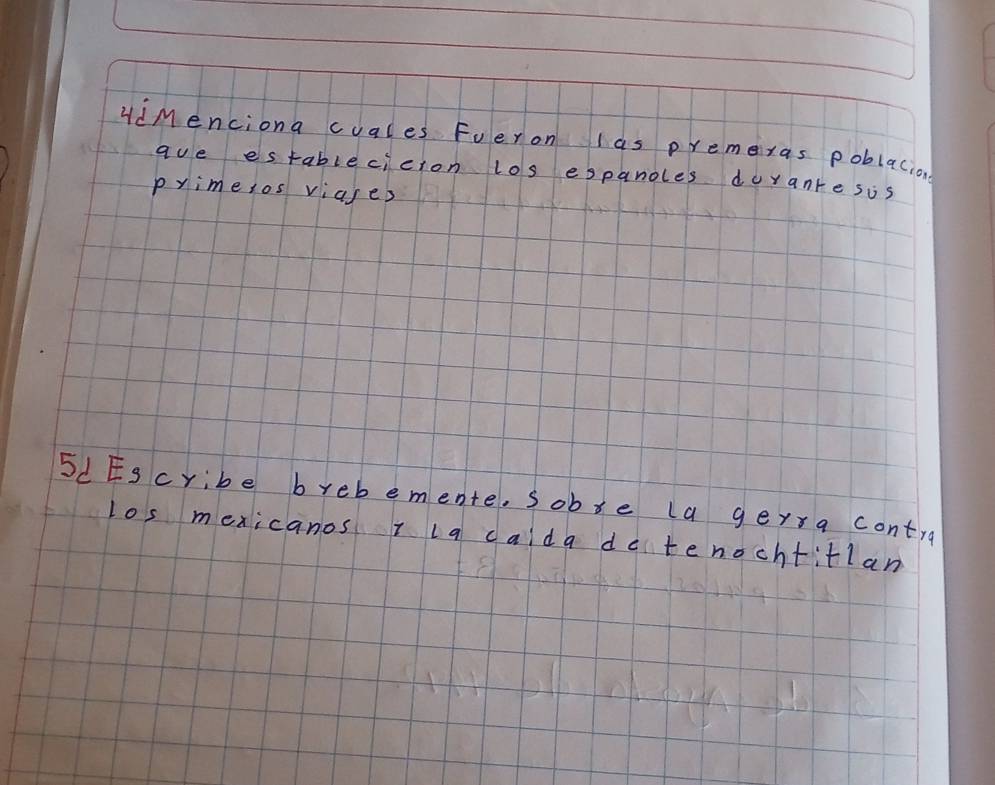 4¿Menciona cuales Fueron las premeras poblacione
que establecicron los espanoles durante sus
primeros viajes
5¿Escribe brebemente. sobre la gerra contra
los mexicanos I la caida de tenochtitlan